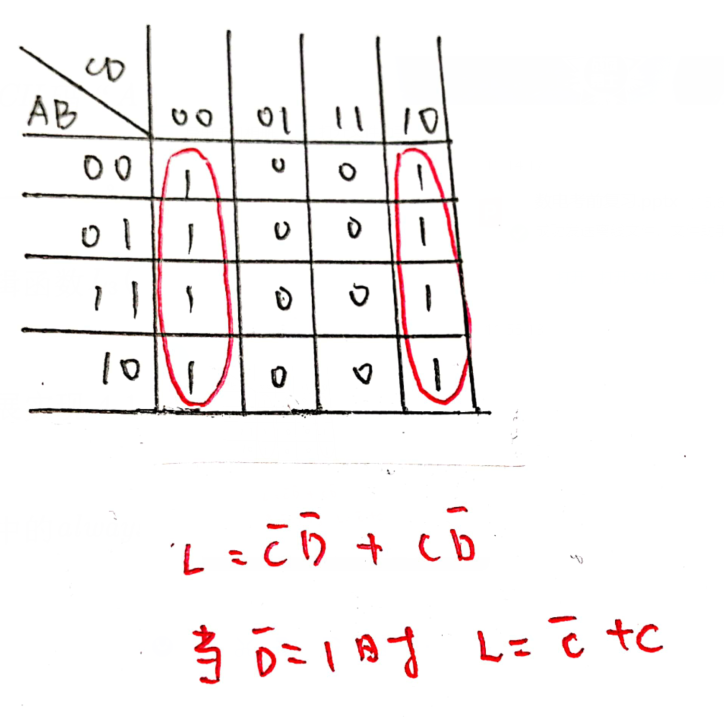 CD
AB 00 01 11 10
00 1 0 0 1
01 1 0 0 1
11 1 0 0 1
10 1 0 0 1
L = C̄ D̄ + C D̄
当 D̄ = 1 时 L = C̄ + C